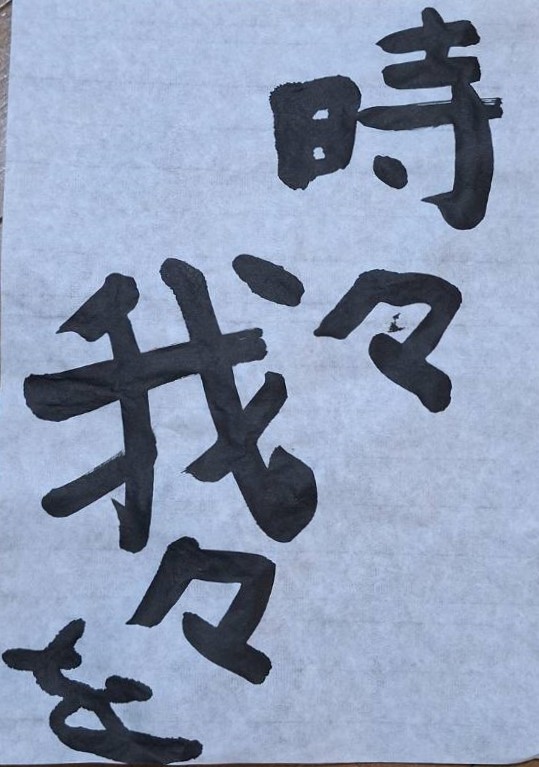 時々
我々を